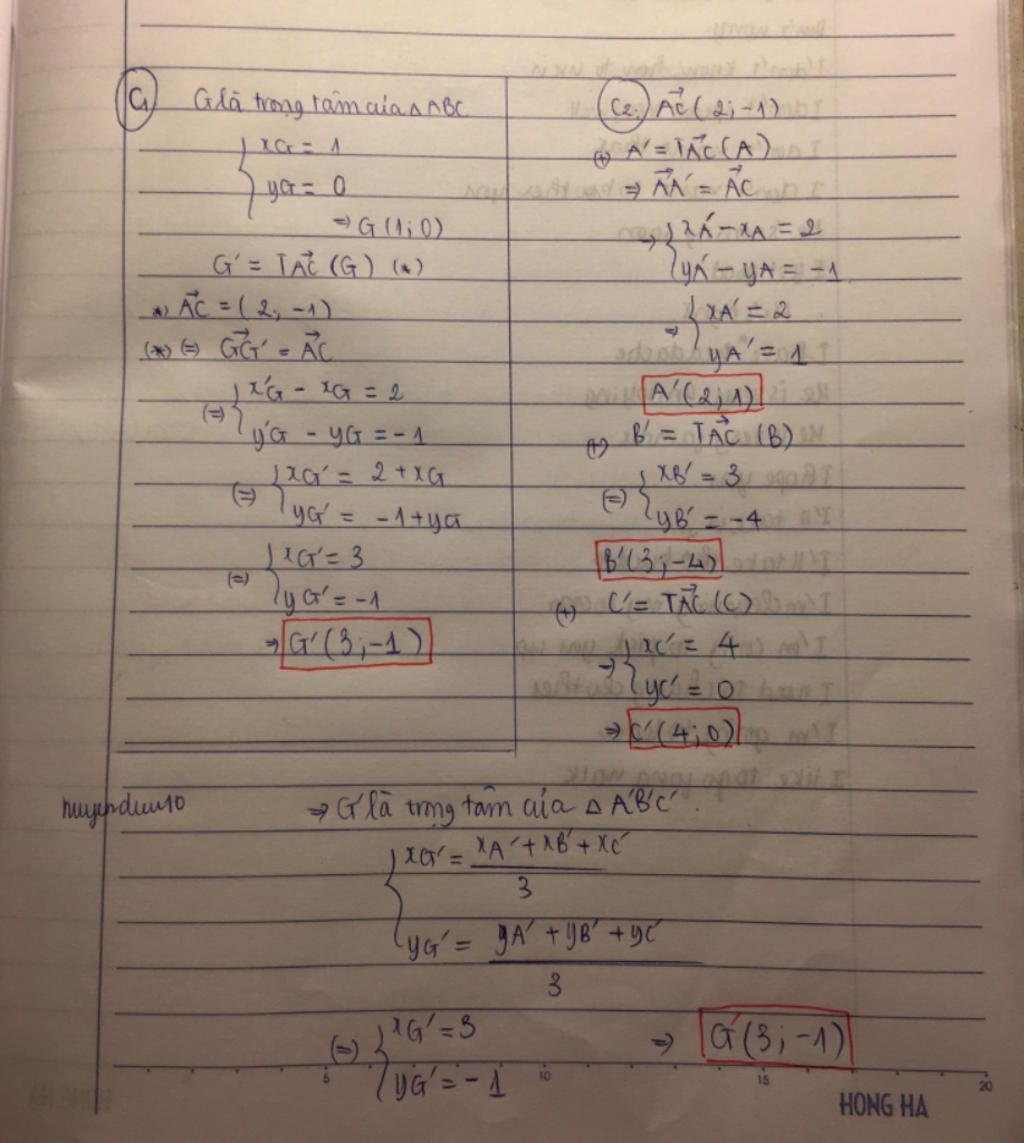 C1 G là trọng tâm của △ABC
xG = 1
yG = 0
⇒ G(1;0)
G' = TAC→ (G) (*)
*) AC→ = (2; -1)
(*) (=) GG'→ = AC→
(=) { x'G - xG = 2
y'G - yG = -1
(=) { xG' = 2 + xG
yG' = -1 + yG
(=) { xG' = 3
yG' = -1
⇒ G'(3;-1)
C2. AC→ (2; -1)
(+) A' = TAC→ (A)
⇒ AA'→ = AC→
⇒ { xA' - xA = 2
yA' - yA = -1
⇒ { xA' = 2
yA' = 1
A'(2;1)
(+) B' = TAC→ (B)
(=) { xB' = 3
yB' = -4
B'(3;-4)
(+) C' = TAC→ (C)
⇒ { xC' = 4
yC' = 0
⇒ C'(4;0)
⇒ G' là trọng tâm của △ A'B'C'.
xG' = xA' + xB' + xC'
3
yG' = yA' + yB' + yC'
3
(=) { xG' = 3
yG' = -1
⇒ G'(3;-1)
5 10 15 20
HONG HA